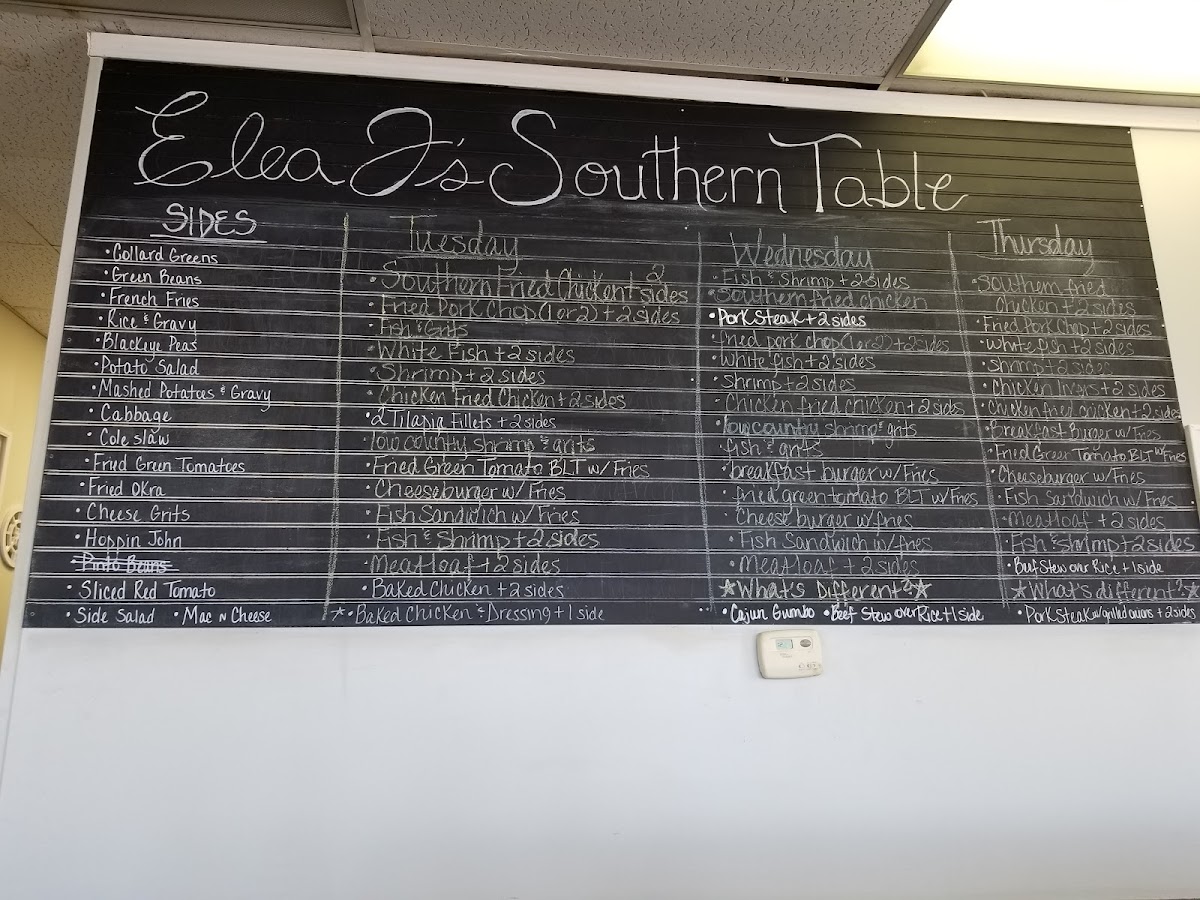 Elea J's Southern Table
SIDES
• Collard Greens
• Green Beans
• French Fries
• Rice & Gravy
• Blackeye Peas
• Potato Salad
• Mashed Potatoes & Gravy
• Cabbage
• Cole slaw
• Fried Green Tomatoes
• Fried Okra
• Cheese Grits
• Hoppin John
• Pinto Beans
• Sliced Red Tomato
• Side Salad • Mac N Cheese
Tuesday
• Southern Fried Chicken + 2 sides
• Fried Pork Chop (1 or 2) + 2 sides
• Fish & Grits
• White Fish + 2 sides
• Shrimp + 2 sides
• Chicken Fried Chicken + 2 sides
• 2 Tilapia Fillets + 2 sides
• low country shrimp & grits
• Fried Green Tomato BLT w/ Fries
• Cheeseburger w/ Fries
• Fish Sandwich w/ Fries
• Fish & Shrimp + 2 sides
• Meatloaf + 2 sides
• Baked Chicken + 2 sides
★ • Baked Chicken & Dressing + 1 side
Wednesday
• Fish & Shrimp + 2 sides
• Southern fried chicken
• Pork Steak + 2 sides
• fried pork chop (1 or 2) + 2 sides
• white fish + 2 sides
• shrimp + 2 sides
• Chicken fried chicken + 2 sides
• low country shrimp & grits
• fish & grits
• breakfast burger w/ Fries
• fried green tomato BLT w/ Fries
• Cheese burger w/ fries
• Fish Sandwich w/ fries
• Meatloaf + 2 sides
★ What's Different? ★
• Cajun Gumbo • Beef Stew over Rice + 1 side
Thursday
• Southern fried
Chicken + 2 sides
• Fried Pork Chop + 2 sides
• white fish + 2 sides
• Shrimp + 2 sides
• Chicken livers + 2 sides
• Chicken fried chicken + 2 sides
• Breakfast Burger w/ Fries
• Fried Green Tomato BLT w/ Fries
• Cheeseburger w/ Fries
• Fish Sandwich w/ Fries
• Meatloaf + 2 sides
• Fish & Shrimp + 2 sides
• Beef Stew over Rice + 1 side
★ What's different? ★
• Pork Steak w/ grilled onions + 2 sides